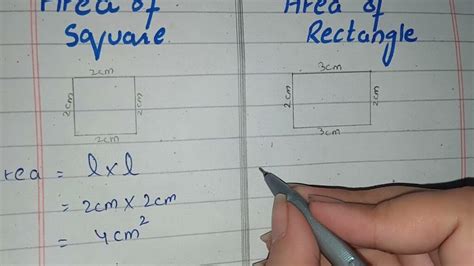 Area of
Square
2cm
2cm
2cm
2cm
rea = l x l
= 2cm x 2cm
= 4cm²
Area of
Rectangle
3cm
2cm
2cm
3cm